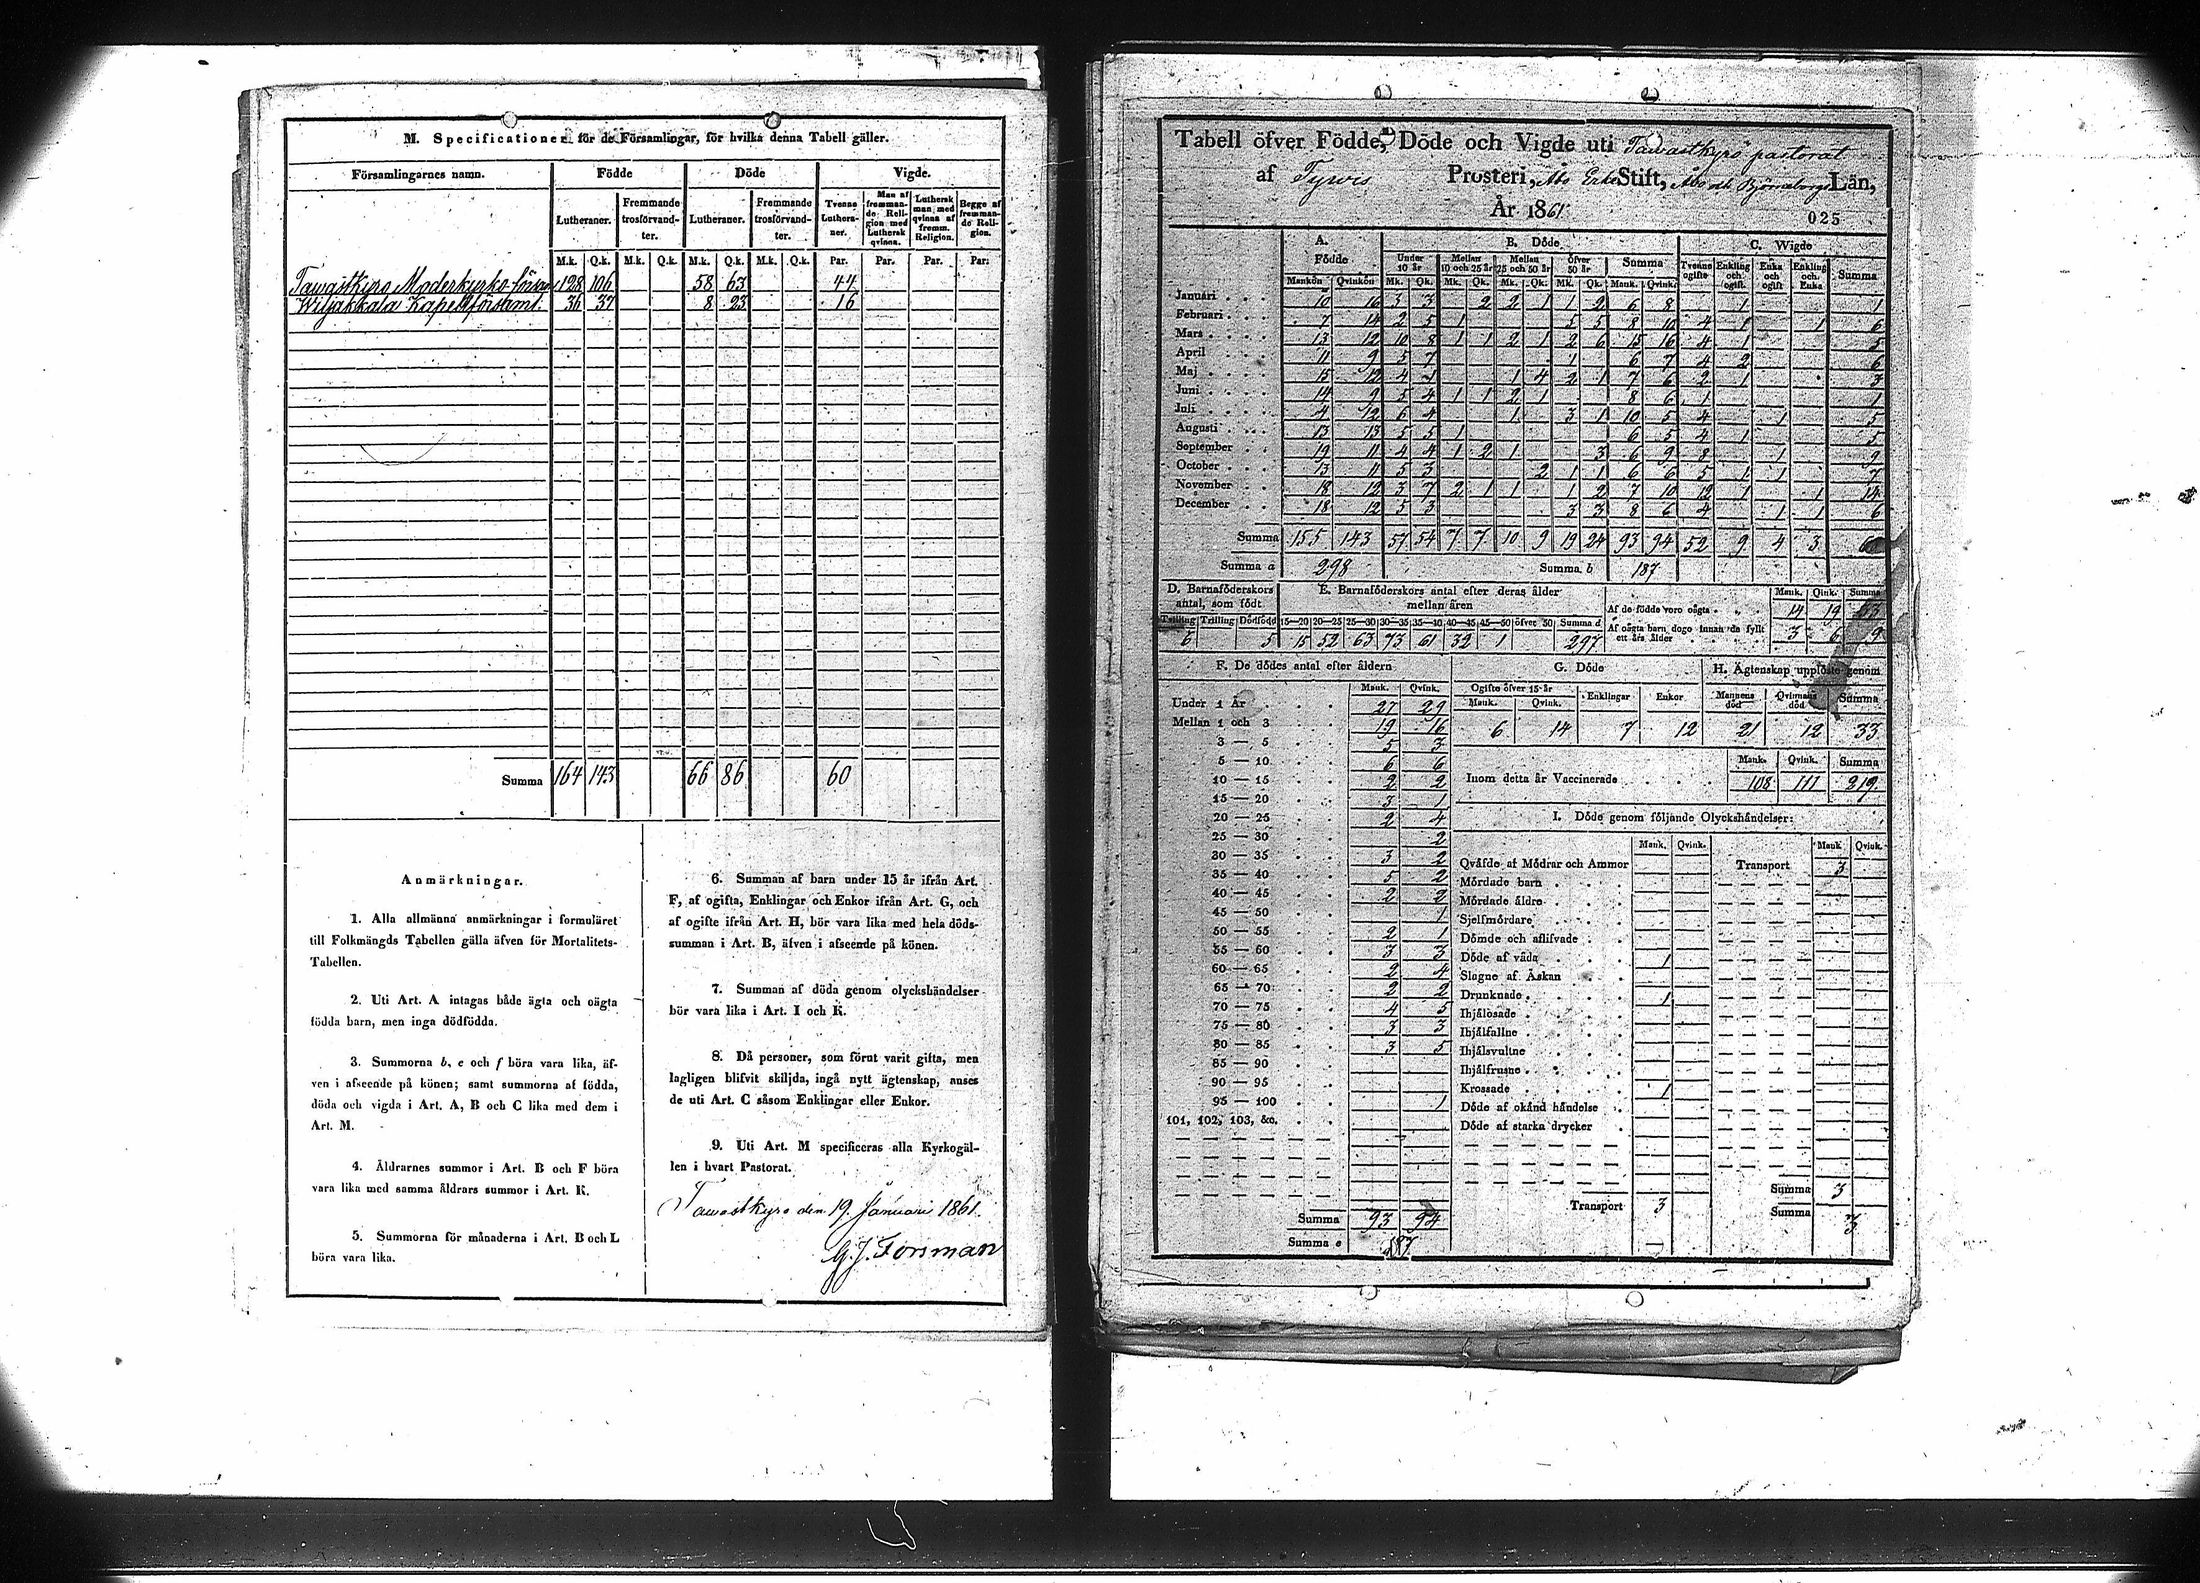 M. Specificationer för de Församlingar, för hvilka denna Tabell gäller.
Församlingarnes namn. Födde Döde Vigde.
Lutheraner. Fremmande trosförvandter. Lutheraner. Fremmande trosförvandter. Tvenne Lutheraner. Man af fremmande Religion med Luthersk qvinna. Luthersk man med qvinna af fremm. Religion. Begge af fremmande Religion.
M.k. Q.k. M.k. Q.k. M.k. Q.k. M.k. Q.k. Par. Par. Par. Par.
Tawastkyro Moderkyrko-försam 128 106 58 63 44
Wiljakkala Kapellförsaml. 36 37 8 23 16
Summa 164 143 66 86 60
Anmärkningar.
1. Alla allmänna anmärkningar i formuläret
till Folkmängds Tabellen gälla äfven för Mortalitets-
Tabellen.
2. Uti Art. A intagas både ägta och oägta
födda barn, men inga dödfödda.
3. Summorna b, e och f böra vara lika, äf-
ven i afseende på könen; samt summorna af födda,
döda och vigda i Art. A, B och C lika med dem i
Art. M.
4. Åldrarnes summor i Art. B och F böra
vara lika med samma åldrars summor i Art. K.
5. Summorna för månaderna i Art. B och L
böra vara lika.
6. Summan af barn under 15 år ifrån Art.
F, af ogifta, Enklingar och Enkor ifrån Art. G, och
af ogifte ifrån Art. H, bör vara lika med hela döds-
summan i Art. B, äfven i afseende på könen.
7. Summan af döda genom olyckshändelser
bör vara lika i Art. I och K.
8. Då personer, som förut varit gifta, men
lagligen blifvit skiljda, ingå nytt ägtenskap, anses
de uti Art. C såsom Enklingar eller Enkor.
9. Uti Art. M specificeras alla Kyrkogäl-
len i hvart Pastorat.
Tawastkyro den 19 Januari 1861.
G. J. Forsman
Tabell öfver Födde, Döde och Vigde uti Tawastkyrö pastorat
af Tyrvis Prosteri, Åbo Erke Stift, Åbo och Björneborgs Län,
År 1861.
025
A. Födde B. Döde C. Wigde
Under 10 år Mellan 10 och 25 år Mellan 25 och 50 år Öfver 50 år Summa Tvenne ogifte Enkling och ogift Enka och ogift Enkling och Enka Summa
Mankön Qvinkön Mk. Qk. Mk. Qk. Mk. Qk. Mk. Qk. Mank. Qvink.
Januari 10 16 3 3 2 2 1 1 2 6 8 1 1
Februari 7 14 2 5 1 5 5 8 10 4 1 1 6
Mars 13 12 10 8 1 1 2 1 2 6 15 16 4 1 5
April 11 9 5 7 1 6 7 4 2 6
Maj 15 12 4 1 1 4 2 1 7 6 2 1 3
Juni 14 9 5 4 1 1 2 1 8 6 1 1
Juli 4 12 6 4 1 3 1 10 5 4 1 5
Augusti 13 13 5 5 1 6 5 4 1 5
September 19 11 4 4 1 2 1 3 6 9 8 1 9
October 13 11 5 3 2 1 1 6 6 5 1 1 7
November 18 12 3 7 2 1 1 1 2 7 10 12 1 1 14
December 18 12 5 3 3 3 8 6 4 1 1 6
Summa 155 143 57 54 7 7 10 9 19 24 93 94 52 9 4 3
Summa a 298 Summa b 187
D. Barnaföderskors antal, som födt
Tvilling Trilling Dödfödd
6 5
E. Barnaföderskors antal efter deras ålder mellan åren
15—20 20—25 25—30 30—35 35—40 40—45 45—50 öfver 50 Summa d
15 52 63 73 61 32 1 297
Mank. Qink. Summa
Af de födde voro oägta 14 19 33
Af oägta barn dogo innan de fyllt ett års ålder 3 6 9
F. De dödes antal efter åldern
Mank. Qvink.
Under 1 År 27 29
Mellan 1 och 3 19 16
3 — 5 5 3
5 — 10 6 6
10 — 15 2 2
15 — 20 3 1
20 — 25 2 4
25 — 30 2
30 — 35 3 2
35 — 40 5 2
40 — 45 2 2
45 — 50 1
50 — 55 2 1
55 — 60 3 3
60 — 65 2 4
65 — 70 2 2
70 — 75 4 5
75 — 80 3 3
80 — 85 3 5
85 — 90
90 — 95
95 — 100 1
101, 102, 103, &c.
Summa 93 94
Summa e 187
G. Döde
Ogifte öfver 15 år Enklingar Enkor
Mank. Qvink.
6 14 7 12
H. Ägtenskap upplöste genom
Mannens död Qvinnans död Summa
21 12 33
Mank. Qvink. Summa
Inom detta år Vaccinerade 108 111 219.
I. Döde genom följande Olyckshändelser:
Mank. Qvink. Mank Qvink.
Qväfde af Mödrar och Ammor Transport 3
Mördade barn
Mördade äldre
Sjelfmördare
Dömde och aflifvade
Döde af våda 1
Slagne af Åskan
Drunknade 1
Ihjälösade
Ihjälfallne
Ihjälsvultne
Ihjälfrusne
Krossade 1
Döde af okänd händelse
Döde af starka drycker
Summa 3
Transport 3 Summa 3